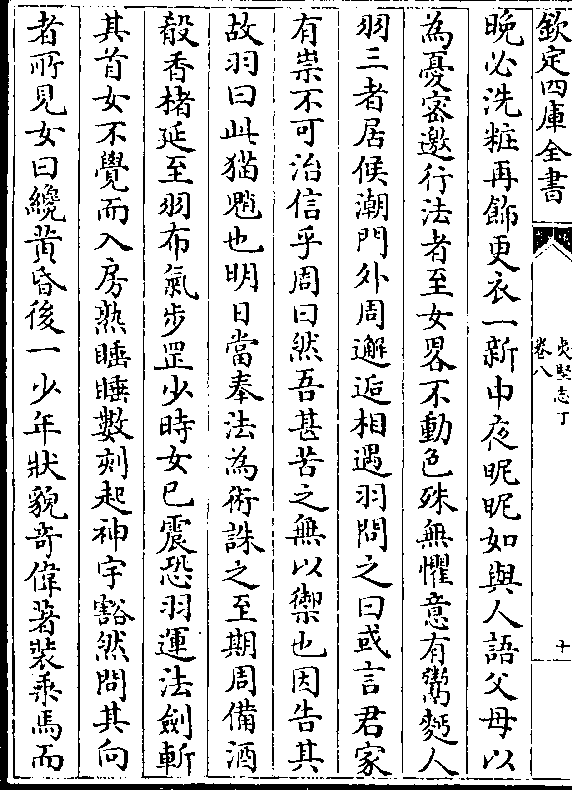 欽定四庫全書
夷堅志丁
卷八
十
晚必洗粧再飾更衣一新中夜昵昵如與人語父母以
為憂密邀行法者至女畧不動色殊無懼意有鬻麪人
羽三者居候潮門外周邂逅相遇羽問之曰或言君家
有祟不可治信乎周曰然吾甚苦之無以禦也因告其
故羽曰此猫魈也明日當奉法為術誅之至期周備酒
殽香楮延至羽布氣步罡少時女已震恐羽運法劍斬
其首女不覺而入房熟睡睡數刻起神宇豁然問其向
者所見女曰纔黄昏後一少年狀貌奇偉著裝乘馬而